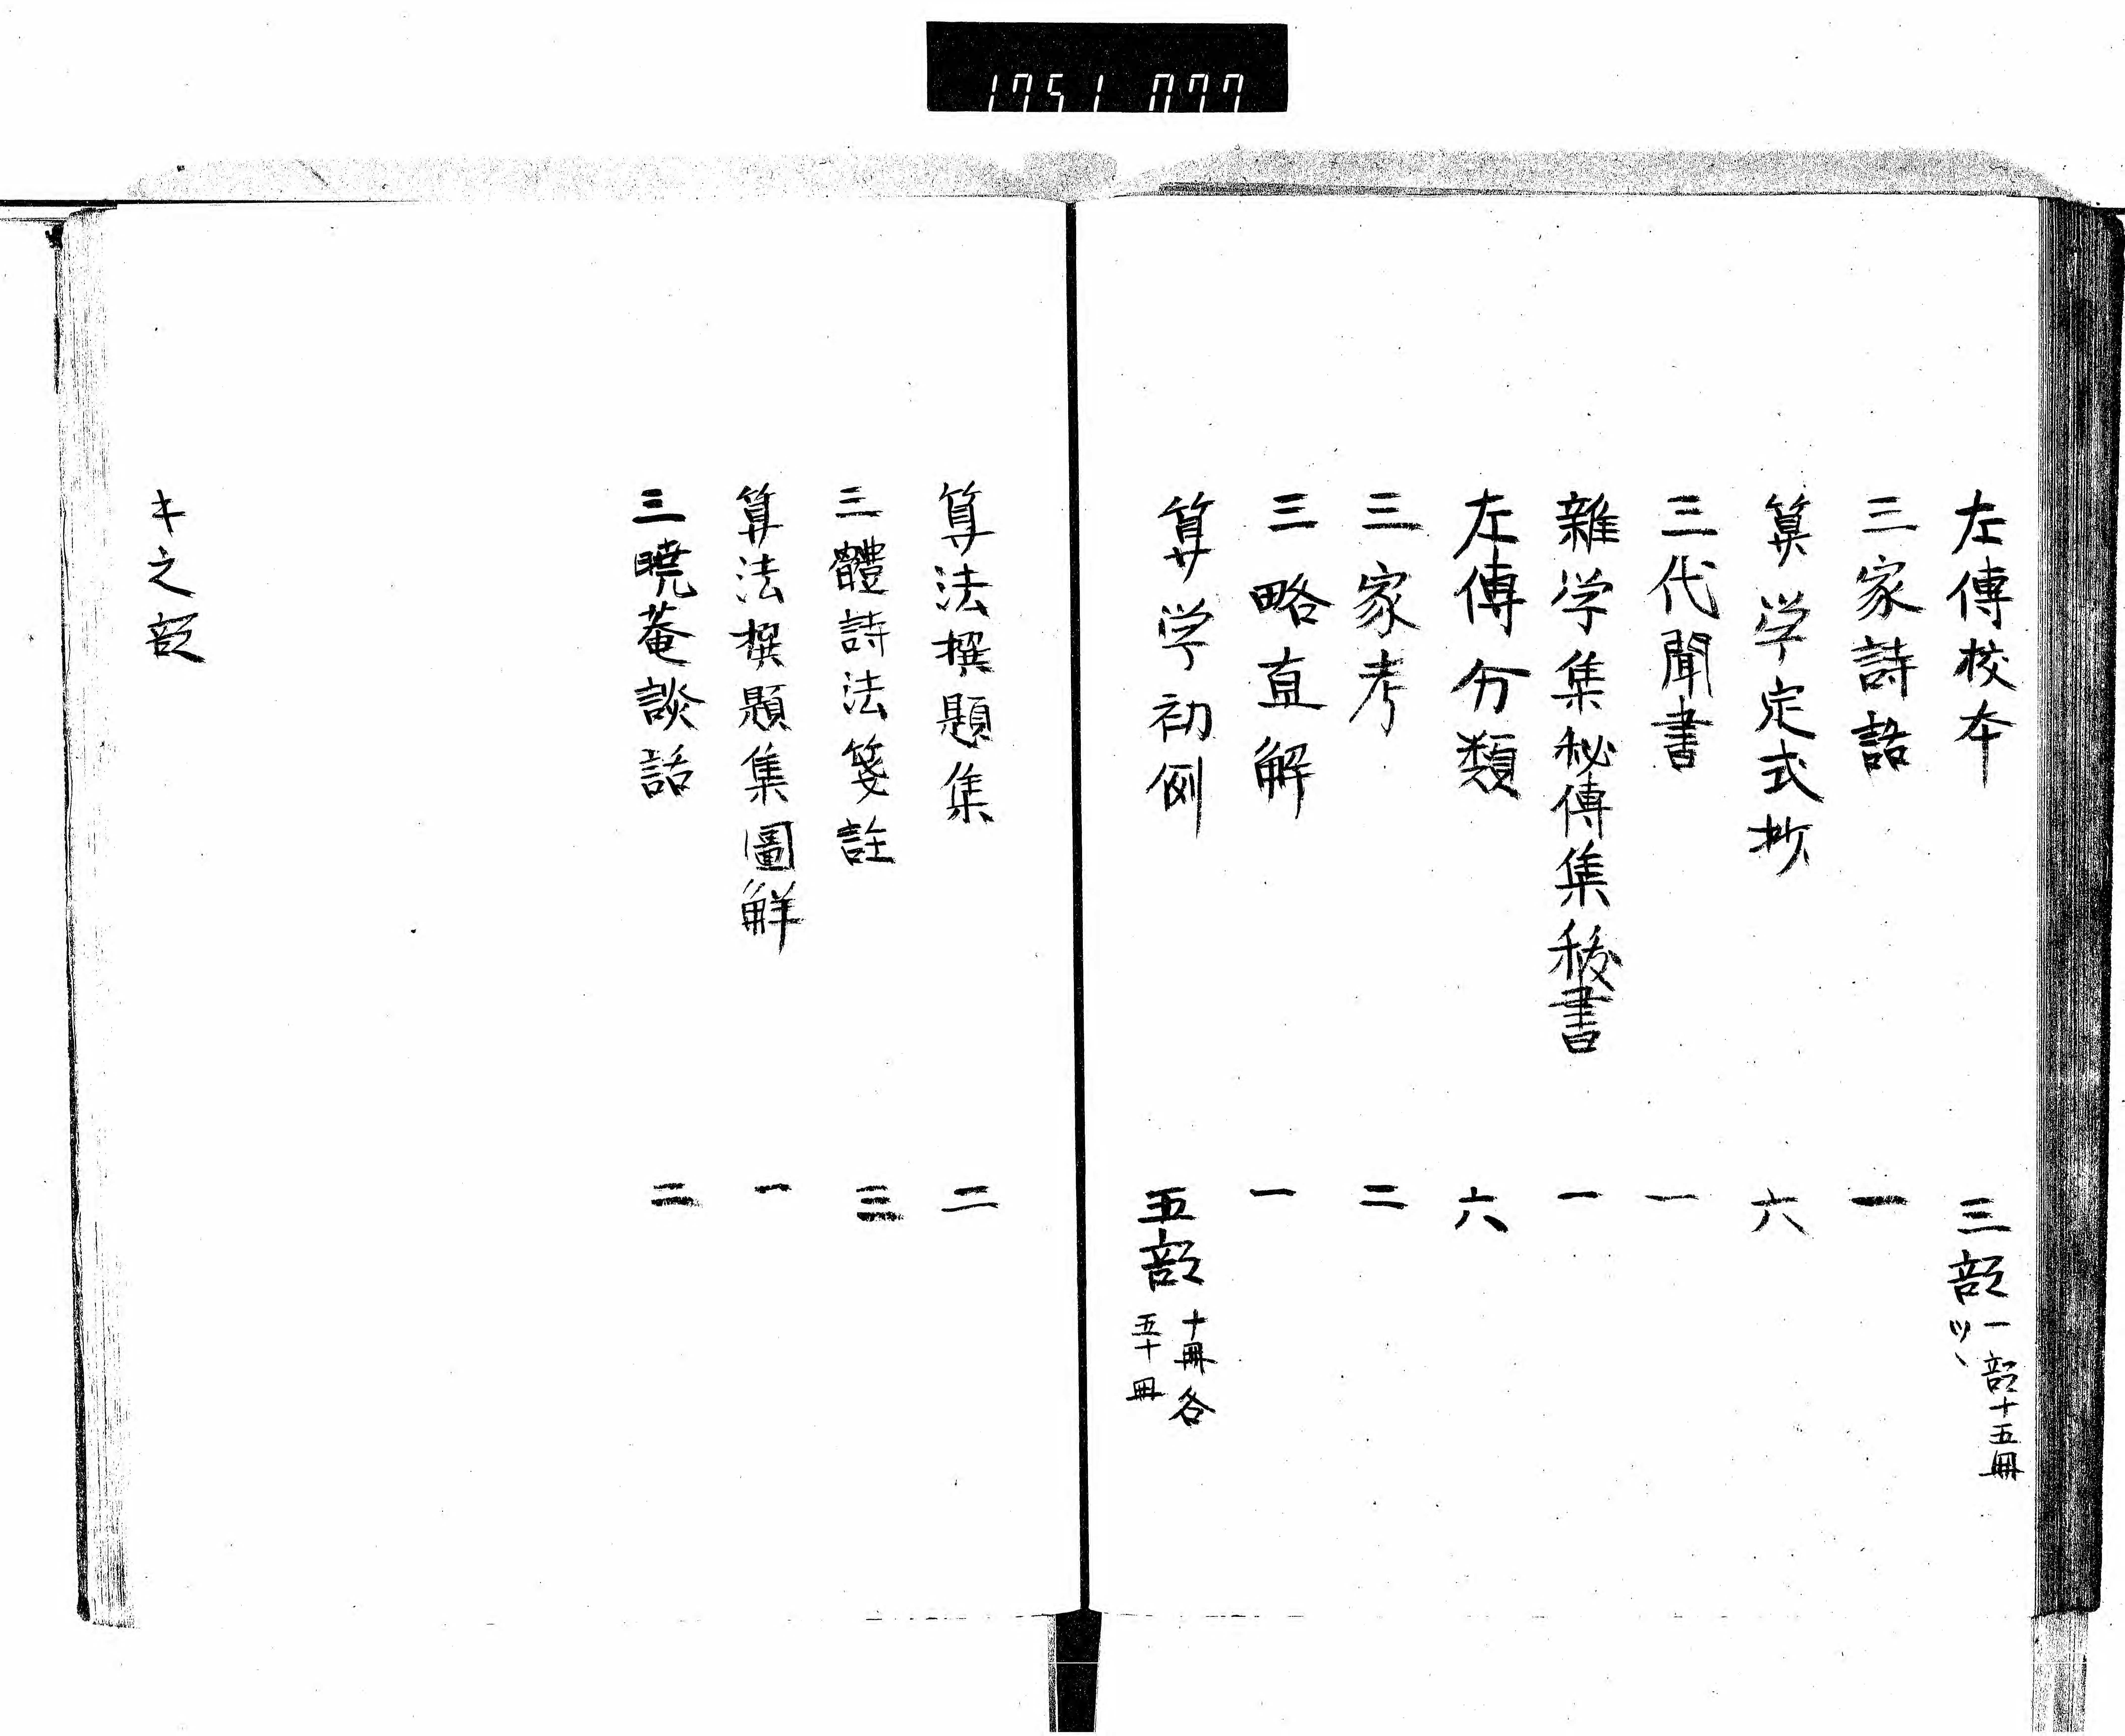 1751 077
左傳校本 三部 一部十五冊ツヽ
三家詩話 一
算学定式抄 六
三代聞書 一
雜学集秘傳集秘書 一
左傳分類 六
三家考 二
三略直解 一
算学初例 五部 十冊各五十冊
算法撰題集 二
三體詩法箋註 三
算法撰題集圖解 一
三曉菴談話 二
キ之部